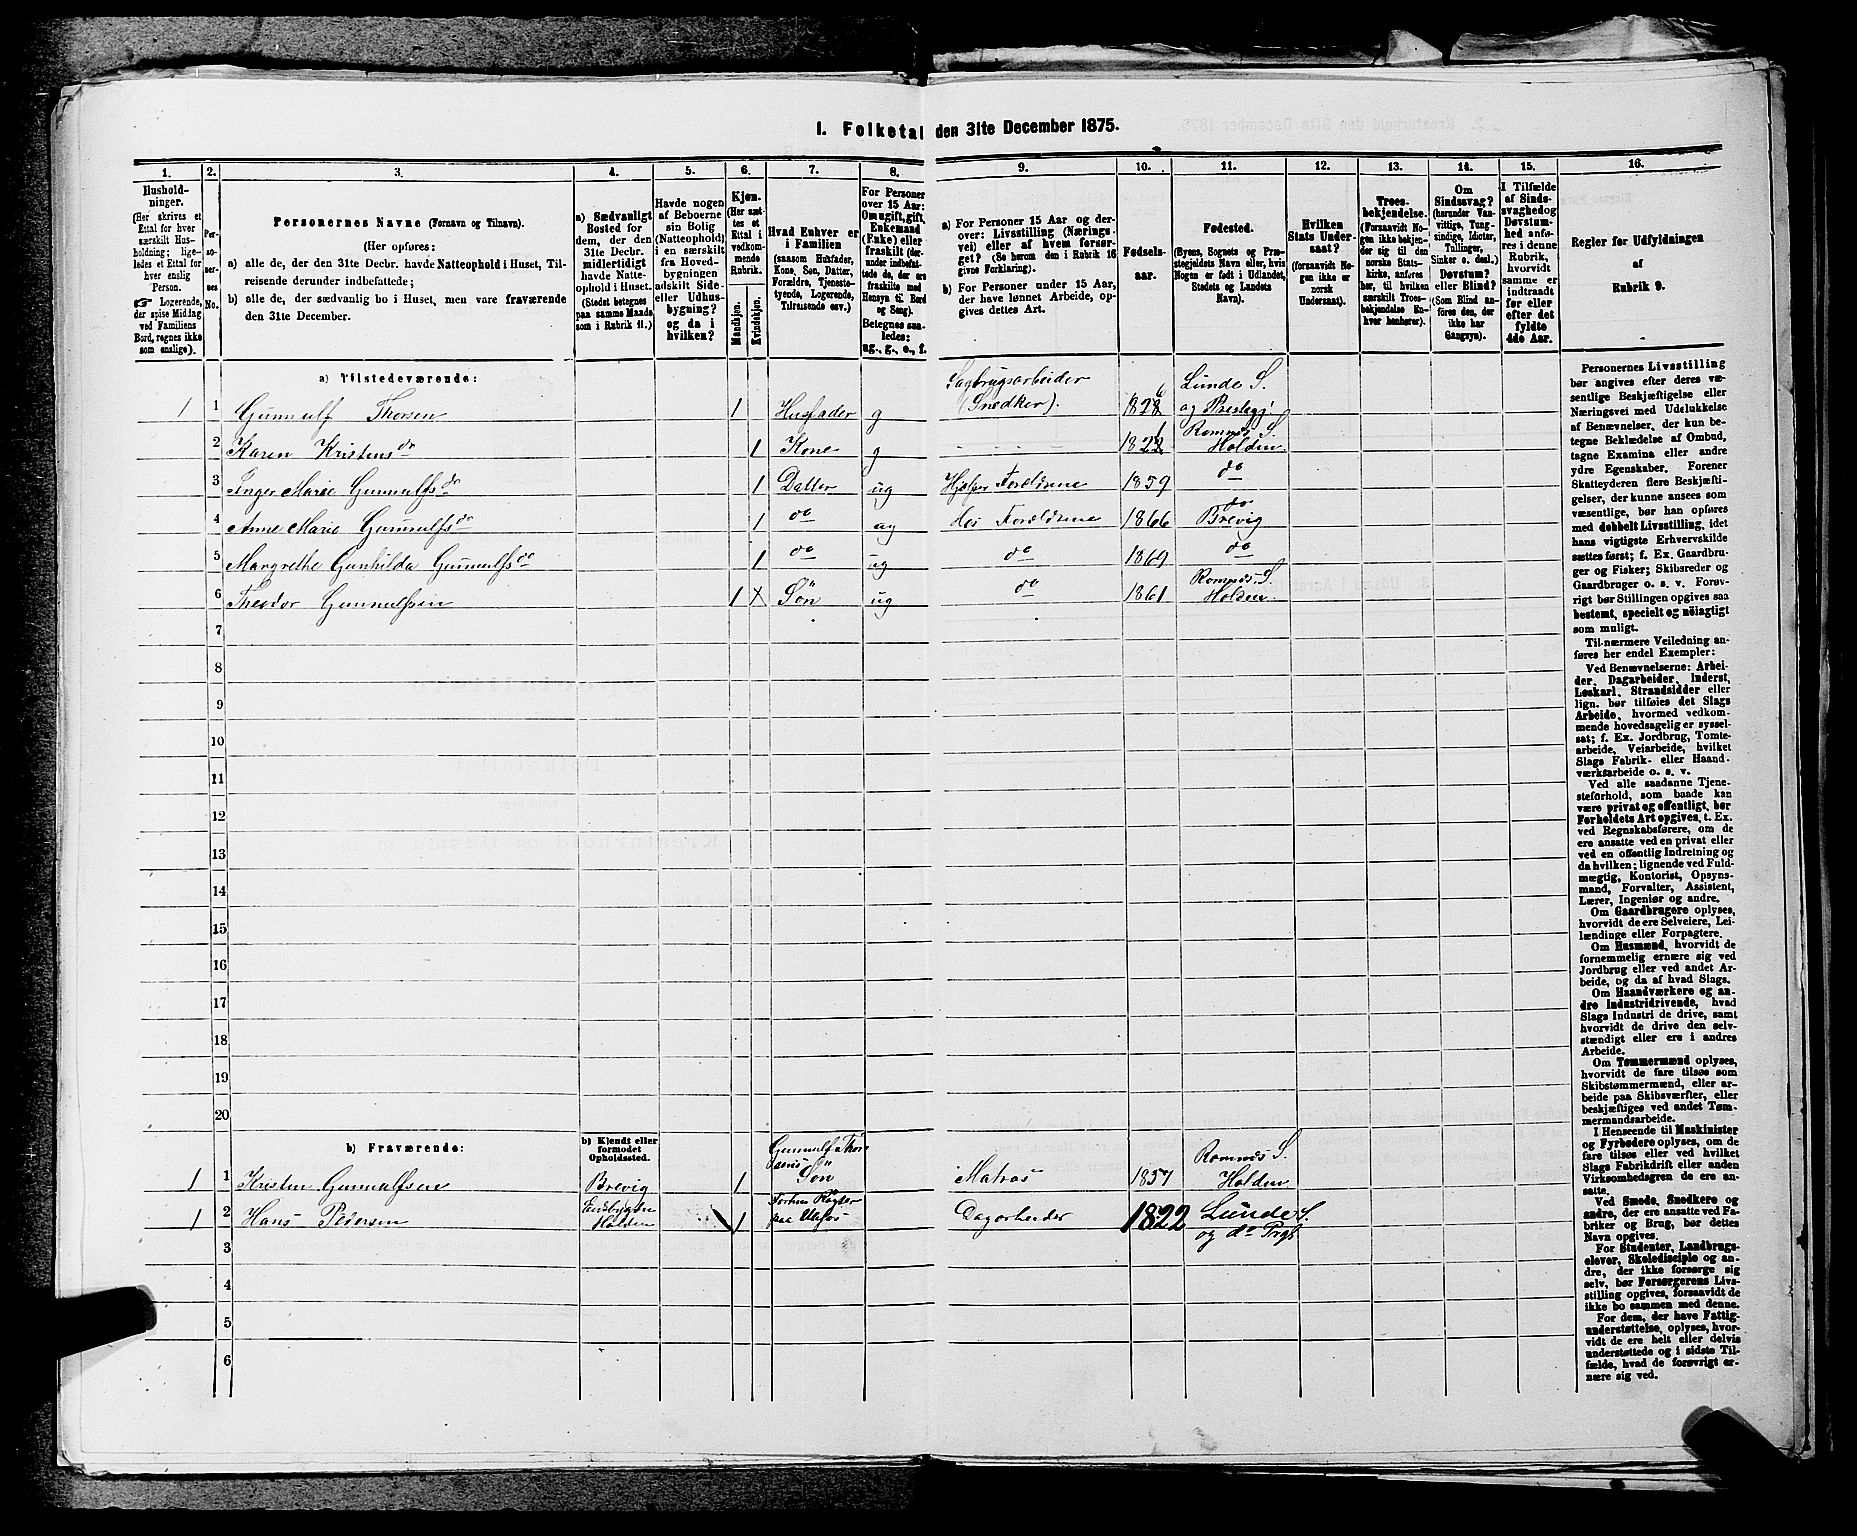 1. Folketal den 31te December 1875.
1.
Hushold-
ninger.
(Her skrives et
Ettal for hver
særskilt Hus-
holdning; lige-
ledes et Ettal for
hver enslig
Person.
☞ Logerende,
der spise Middag
ved Familiens
Bord, regnes ikke
som enslige).
2.
Per-
so-
ner-
nes
No.
3.
Personernes Navne (Fornavn og Tilnavn).
(Her opføres:
a) alle de, der den 31te Decbr. havde Natteophold i Huset, Til-
reisende derunder indbefattede;
b) alle de, der sædvanlig bo i Huset, men vare fraværende
den 31te December.
4.
a) Sædvanligt
Bosted for
dem, der den
31te Decbr.
midlertidigt
havde Natte-
ophold i Huset.
(Stedet betegnes
paa samme Maade
som i Rubrik 11.)
5.
Havde nogen
af Beboerne
sin Bolig
(Natteophold)
i en særskilt
fra Hoved-
bygningen
adskilt Side-
eller Udhus-
bygning?
og da i
hvilken?
6.
Kjøn.
(Her sæt-
tes et
Ettal i
vedkom-
mende
Rubrik.
Mandkjøn.
Kvindekjøn.
7.
Hvad Enhver er
i Familien
(saasom Husfader,
Kone, Søn, Datter,
Forældre, Tjeneste-
tyende, Logerende,
Tilreisende osv.)
8.
For Personer
over 15 Aar:
Om ugift, gift,
Enkemand
(Enke) eller
fraskilt (der-
under indbefat-
tede de, der ere
fraskilte med
Hensyn til Bord
og Seng).
Betegnes saa-
ledes:
ug., g., e., f.
9.
a) For Personer 15 Aar og der-
over: Livsstilling (Nærings-
vei) eller af hvem forsør-
get? (Se herom den i Rubrik 16
givne Forklaring).
b) For Personer under 15 Aar,
der have lønnet Arbeide, op-
gives dettes Art.
10.
Fødsels-
aar.
11.
Fødested.
(Byens, Sognets og Præ-
stegjeldets Navn eller, hvis
Nogen er født i Udlandet,
Stedets og Landets
Navn).
12.
Hvilken
Stats Under-
saat?
(forsaavidt No-
gen ikke er
norsk
Undersaat).
13.
Troes-
bekjendelse.
(Forsaavidt No-
gen ikke bekjen-
der sig til den
norske Stats-
kirke, anføres
her, til hvilken
særskilt Troes-
bekjendelse En-
hver henhører).
14.
Om
Sindssvag?
(herunder Van-
vittige, Tung-
sindige, Idioter,
Tullinger,
Sinker o. desl.)
Døvstum?
eller Blind?
(Som Blind an-
føres den, der
ikke har
Gangsyn).
15.
I Tilfælde
af Sinds-
svaghed og
Døvstum-
hed anfø-
res i denne
Rubrik,
hvorvidt
samme er
indtraadt
før eller
efter det
fyldte
4de Aar.
16.
Regler for Udfyldningen
af
Rubrik 9.
a) Tilstedeværende:
1 1 Gunnulf Thorsen 1 Husfader g Sagbrugsarbeider (Snedker). 1826 Lunde S. og Prestegj.
2 Karen Kristensdr 1 Kone g 1821 Romnæs S. Holden
3 Inger Marie Gunnulfsdr 1 Datter ug Hjelper Forældrene 1859 do do
4 Anne Marie Gunnulfsdr 1 do ug Hos Forældrene 1866 Brevig
5 Margrethe Gunhilda Gunnulfsdr 1 do ug do 1869 do
6 Theodor Gunnulfsen 1 x Søn ug do 1861 Romnds. S. Holden.
7
8
9
10
11
12
13
14
15
16
17
18
19
20
b) Fraværende:
b) Kjendt eller
formodet
Opholdssted.
1 1 Kristen Gunnulfsen Brevig 1 Gunnulf Thorsens Søn Matros 1857 Romnds S. Holden
1 2 Hans Pedersen Holden 1 paa Ulefos Dagarbeider 1822 Lunde S. og do Prgj.
3
4
5
6
Personernes Livsstilling
bør angives efter deres væ-
sentlige Beskjæftigelse eller
Næringsvei med Udelukkelse
af Benævnelser, der kun be-
tegne Beklædelse af Ombud,
tagne Examina eller andre
ydre Egenskaber. Forener
Skatteyderen flere Beskjæfti-
gelser, der kunne ansees som
væsentlige, bør han opføres
med dobbelt Livsstilling, idet
hans vigtigste Erhvervskilde
sættes først; f. Ex. Gaardbru-
ger og Fisker; Skibsreder og
Gaardbruger o. s. v. Forøv-
rigt bør Stillingen opgives saa
bestemt, specielt og nöiagtigt
som muligt.
Til nærmere Veiledning an-
føres her endel Exempler:
Ved Benævnelserne: Arbei-
der, Dagarbeider, Inderst,
Løskarl, Strandsidder eller
lign. bør tilføies det Slags
Arbeide, hvormed vedkom-
mende hovedsagelig er syssel-
sat; f. Ex. Jordbrug, Tomte-
arbeide, Veiarbeide, hvilket
Slags Fabrik- eller Haand-
værksarbeide o. s. v.
Ved alle saadanne Tjene-
steforhold, som baade kan
være privat og offentligt, bør
Forholdets Art opgives, t. Ex.
ved Regnskabsførere, om de
ere ansatte ved en privat eller
ved en offentlig Indretning og
da hvilken; lignende ved Fuld-
mægtig, Kontorist, Opsyns-
mand, Forvalter, Assistent,
Lærer, Ingeniør og andre.
Om Gaardbrugere oplyses,
hvorvidt de ere Selveiere, Lei-
lændinge eller Forpagtere.
Om Husmænd, hvorvidt de
fornemmelig ernære sig ved
Jordbrug eller ved andet Ar-
beide, og da af hvad Slags.
Om Haandværkere og an-
dre Industridrivende, hvad
Slags Industri de drive, samt
hvorvidt de drive den selv-
stændigt eller ere i andres
Arbeide.
Om Tømmermænd oplyses,
hvorvidt de fare tilsøs som
Skibstømmermænd, eller ar-
beide paa Skibsværfter, eller
beskjæftiges ved andet Tøm-
mermandsarbeide.
I Henseende til Maskinister
og Fyrbødere oplyses, om de
fare tilsøs eller ved hvilket
Slags Fabrikdrift eller anden
Virksomhedsgren de ere an-
satte.
Ved Smede, Snedkere og
andre, der ere ansatte ved Fa-
briker og Brug, bør dettes
Navn opgives.
For Studenter, Landbrugs-
elever, Skoledisciple og an-
dre, der ikke forsørge sig
selv, bør Forsørgerens Livs-
stilling opgives, forsaavidt de
ikke bo sammen med denne.
For dem, der have Fattig-
understøttelse, oplyses, hvor-
vidt de ere helt eller delvis
understøttede og i sidste Til-
fælde, hvad de forøvrigt er-
nære sig ved.